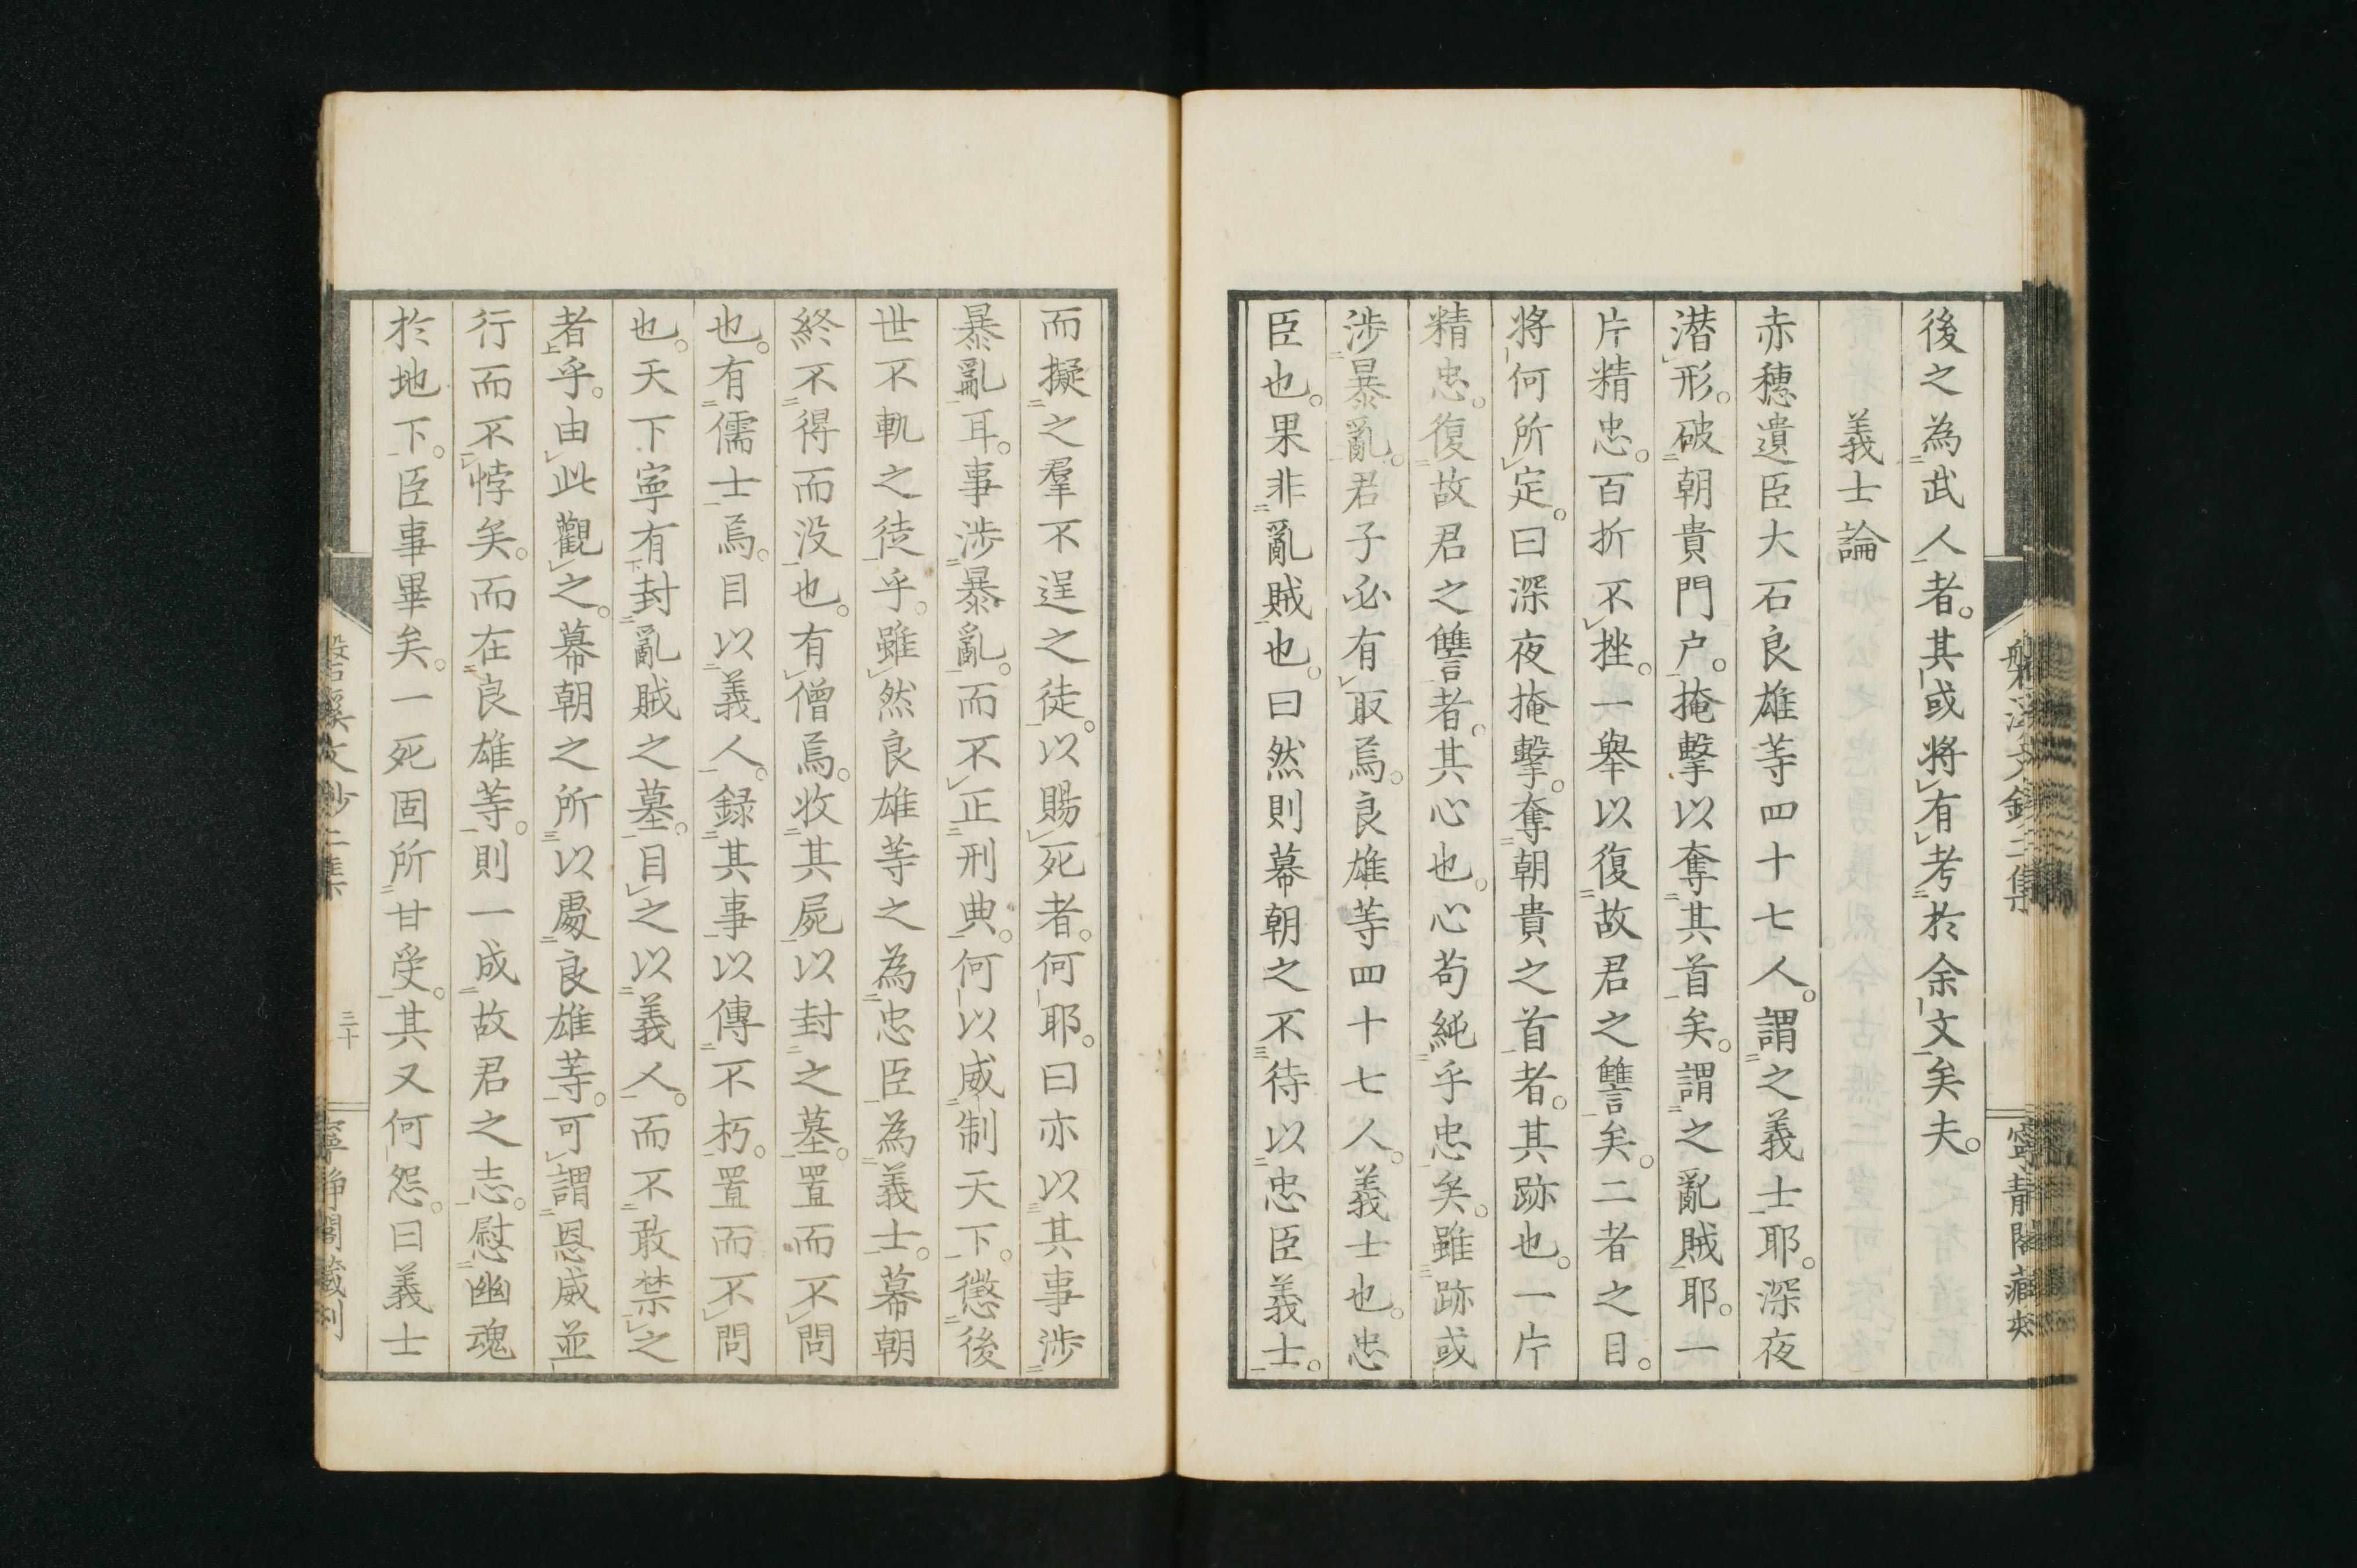 後之為武人者。其或將有考於余文矣夫。
義士論
赤穗遺臣大石良雄等四十七人。謂之義士耶。深夜
潜形。破朝貴門户。掩擊以奪其首矣。謂之亂賊耶。一
片精忠。百折不挫。一舉以復故君之讐矣。二者之目。
將何所定。曰深夜掩擊。奪朝貴之首者。其跡也。一片
精忠。復故君之讐者。其心也。心苟純乎忠矣。雖跡或
涉暴亂。君子必有取焉。良雄等四十七人。義士也。忠
臣也。果非亂賊也。曰然則幕朝之不待以忠臣義士。
而擬之羣不逞之徒。以賜死者。何耶。曰亦以其事涉
暴亂耳。事涉暴亂。而不正刑典。何以威制天下。懲後
世不軌之徒乎。雖然良雄等之為忠臣為義士。幕朝
終不得而没也。有僧焉。收其屍以封之墓。置而不問
也。有儒士焉。目以義人。録其事以傳不朽。置而不問
也。天下寧有封亂賊之墓。目之以義人。而不敢禁之
者乎。由此觀之。幕朝之所以處良雄等。可謂恩威並
行而不悖矣。而在良雄等。則一成故君之志。慰幽魂
於地下。臣事畢矣。一死固所甘受。其又何怨。曰義士
磐溪文鈔二集
三十
寧靜閣藏刊